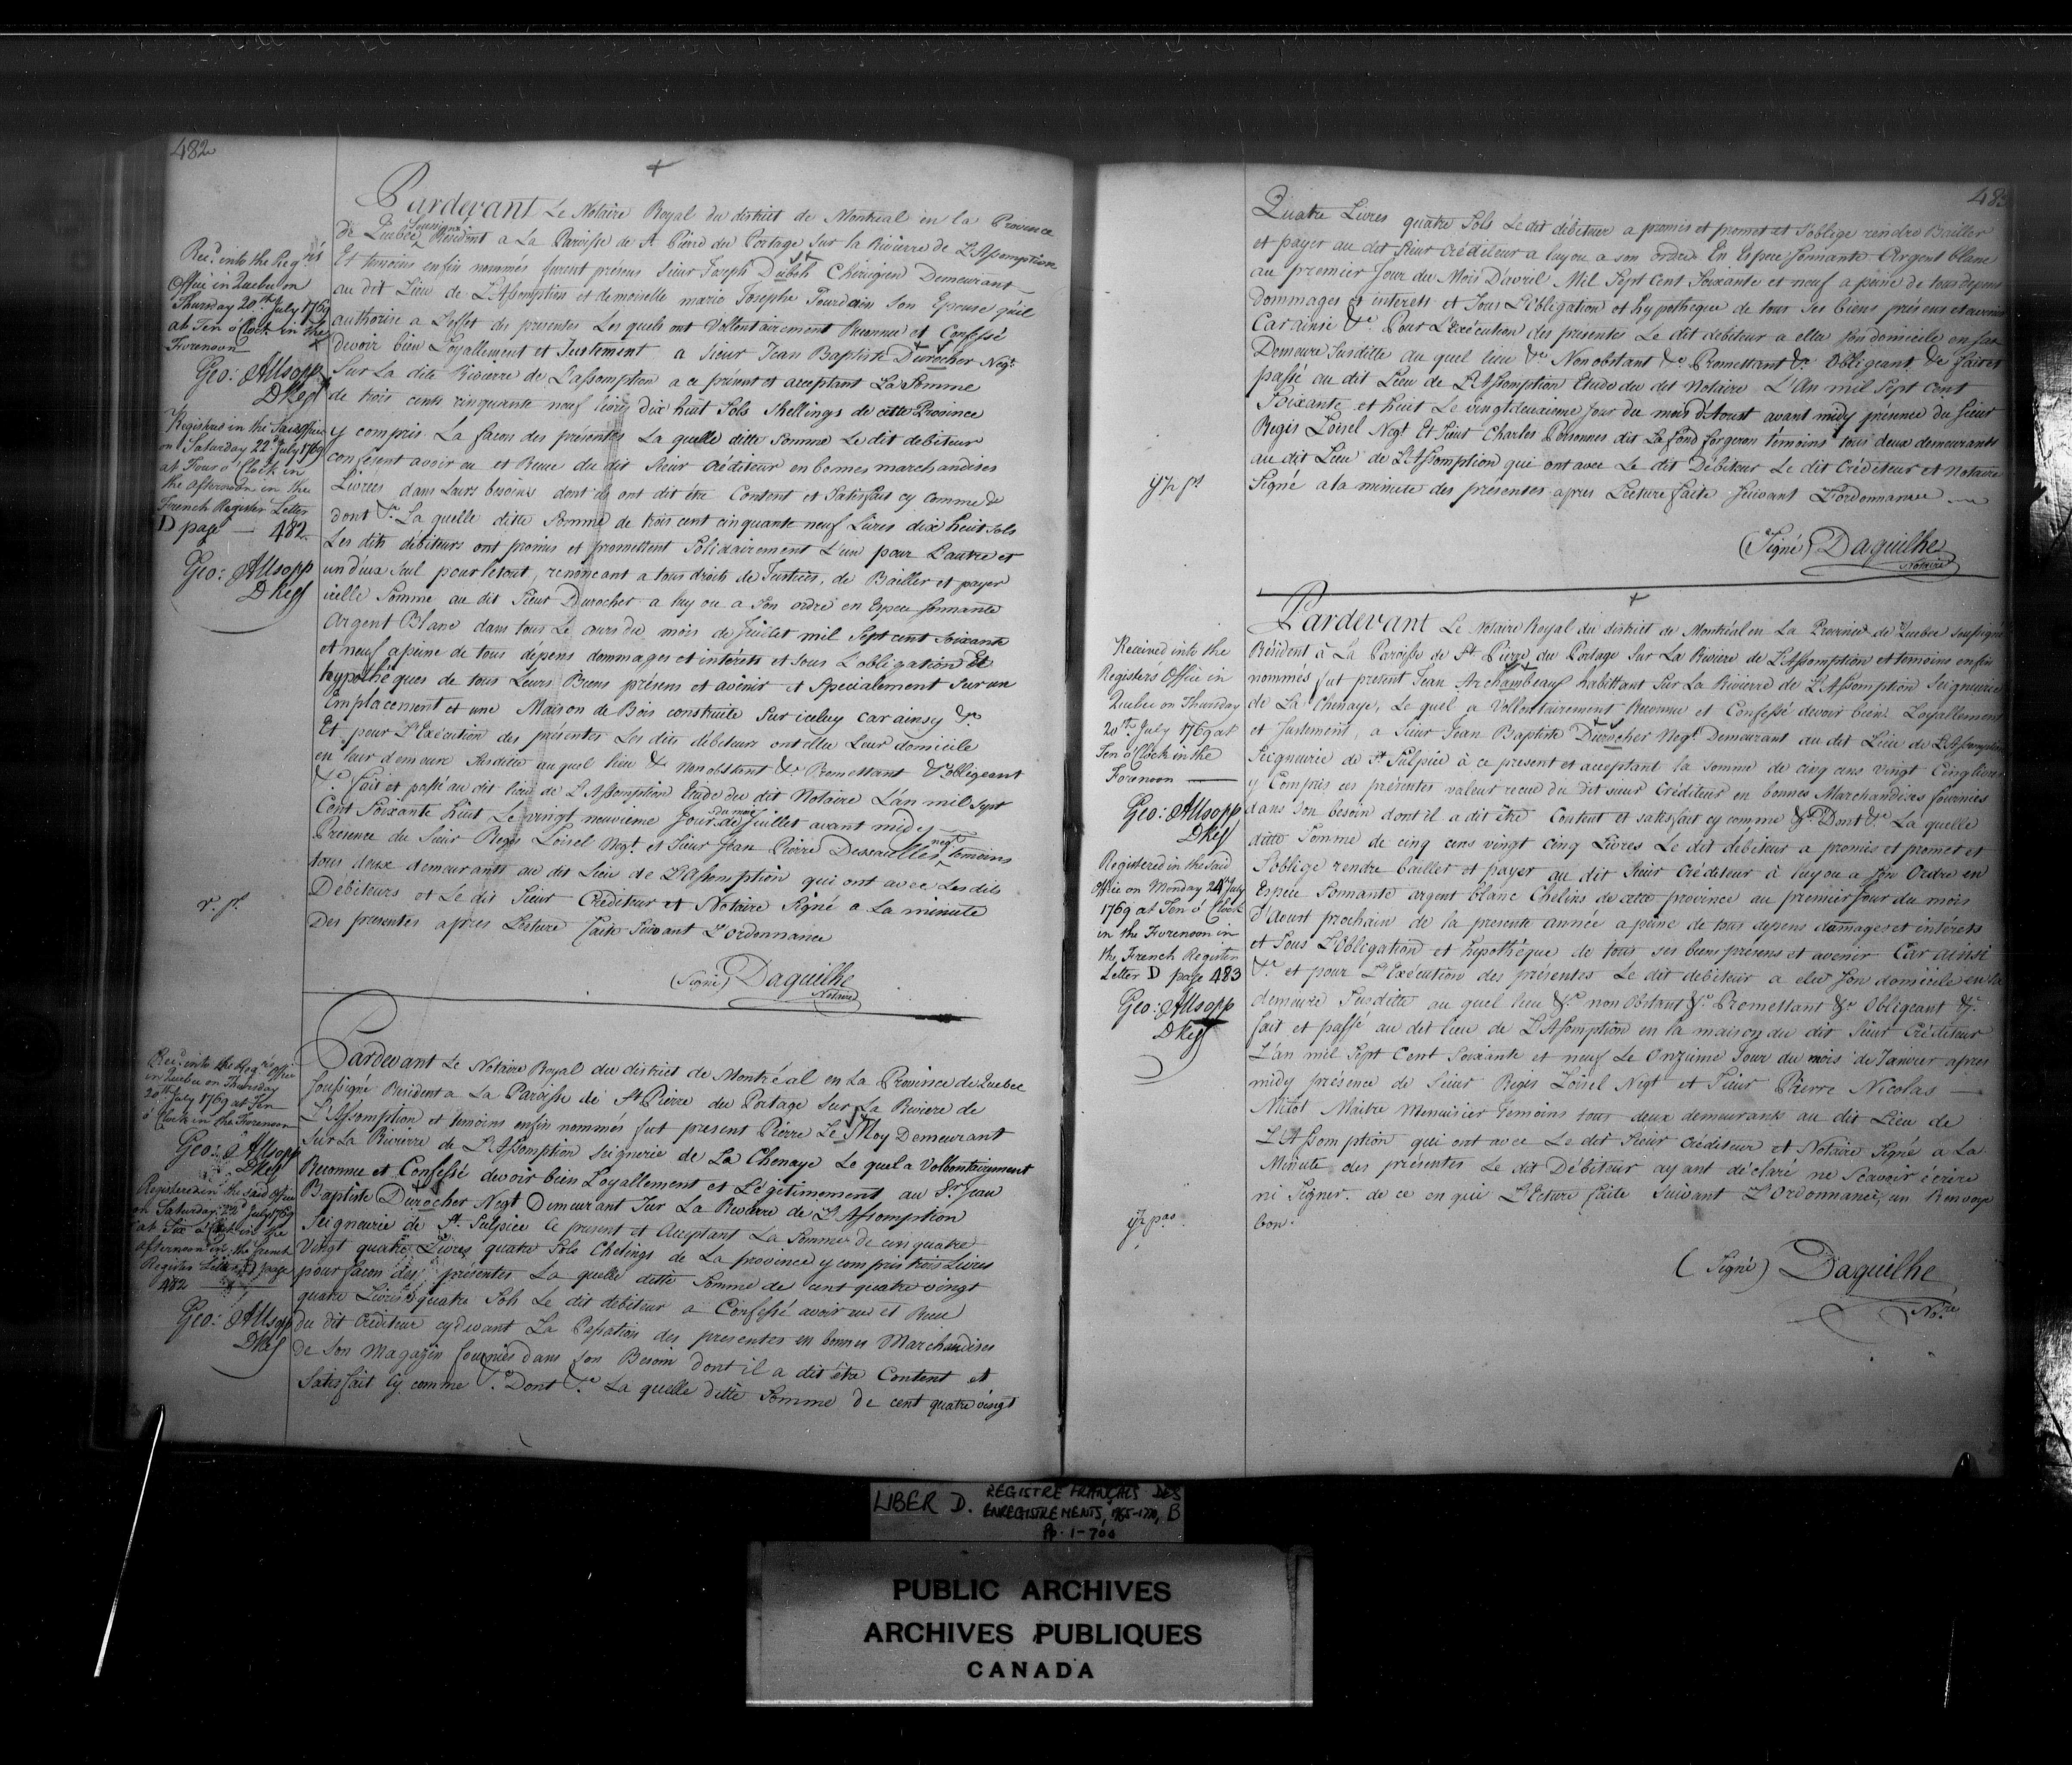 482
Pardevant Le Notaire Royal du district de Montreal en la Province
de Quebec Soussigné Résident a La Paroisse de St Pierre du Portage Sur la Riviere de L'Assomption
Et temoins enfin nommés furent présens Sieur Joseph Chirurgien Demeurant
au dit Lieu de L'Assomption et demoiselle marie Josephe Jourdain Son Epouse qu'il
authorise a L'effet des presentes Les quels ont Vollontairement Reconnu et Confessé
devoir bien Loyallement et Justement a Sieur Jean Baptiste Durocher Negt
Sur La dite Rivierre de L'assomption a ce présent et acceptant La Somme
de trois cents cinquante neuf livres dix huit Sols Shellings de cette Province
y compris La facon des présentes La quelle ditte Somme Le dit debiteur
confessent avoir eu et Receu du dit Sieur Créditeur en bonnes marchandises
Livrées dans Leurs besoins dont ils ont dit être Content et Satisfait cy Comme &
dont &c La quelle ditte Somme de trois cent cinquante neuf Livres dix huit Sols
Les dits débiteurs ont promis et promettent Solidairement L'un pour L'autre et
un d'eux Seul pour le tout, renoncant a tous droits de Justices, de Bailler et payer
icelle Somme au dit Sieur Durocher a luy ou a Son ordre en Espece Sonnante
Argent Blanc dans tous Le cours du mois de Juillet mil Sept cent Soixante
et neuf a peine de tous depens dommages et intérêts et sous L'obligation Et
hypothéques de tous Leurs Biens présens et avenir et Specialement Sur un
Emplacement et une Maison de Bois construite Sur iceluy car ainsy &c
Et pour L'Exécution des présentes Les dits débiteurs ont elu Leur domicile
en leur demeure Susditte auquel lieu & Non obstant &c Promettant & obligeant
&c fait et passé au dit lieu de L'Assomption Etude du dit Notaire L'an mil Sept
Cent Soixante Huit Le vingt neuvieme Jour du mois de Juillet avant midy
Presence du Sieur Regis Loisel Negt et Sieur Jean Pierre Dessaulles negt temoins
tous deux demeurants au dit Lieu de L'Assomption qui ont avec Les dits
Débiteurs et Le dit Sieur Créditeur et Notaire Signé a La minute
Des presentes apres Lecture faite Suivant L'ordonnance
(Signé) Daguilhe
Notaire
Recd into the Regrs
Office in Quebec on
Thursday 20th July 1769
at Ten o'Clock in the
Forenoon
Geo: Allsopp
DRegr
Registered in the Said Office
on Saturday 22d July 1769
at Four o'Clock in
the afternoon in the
French Register Letter
D page — 482.
Geo: Allsopp
DRegr
Pardevant Le Notaire Royal du district de Montréal en La Province de Quebec
Soussigné Resident a La Paroisse de St Pierre du Portage Sur La Riviere de
L'Assomption et temoins enfin nommés fut present Pierre Le Roy Demeurant
Sur La Rivierre de L'Assomption Seignerie de La Chenaye Le quel a Vollontairement
Reconnu et Confessé devoir bien Loyallement et Légitimement au Sr Jean
Baptiste Durocher Negt Demeurant Sur La Rivierre de L'Assomption
Seigneurie de St Sulpice Ce present et Acceptant La Somme de cent quatre
Vingt quatre Livres quatre Sols Chelings de La province y compris trois Livres
pour facon des présentes La quelle ditte Somme de cent quatre vingt
quatre Livres quatre Sols Le dit debiteur a Confessé avoir eu et Receu
du dit Créditeur cy devant La Passation des presentes en bonnes Marchandises
de Son Magazin fournies dans Son Besoin dont il a dit être Content et
Satisfait Cy comme &c Dont &c La quelle ditte Somme de cent quatre vingt
Recd into the Regrs office
in Quebec on Thursday
20th July 1769 at Ten
o'Clock in the Forenoon
Geo: Allsopp
DRegr
Registered in the said Office
on Saturday 22d July 1769
at Six o'Clock in the
afternoon in the french
Register Letter D page
482
Geo: Allsopp
DRegr
Quatre Livres quatre Sols Le dit débiteur a promis et promet et S'oblige rendre Bailler
et payer au dit Sieur Créditeur a luy ou a son ordre En Espece Sonnante Argent blanc
au premier Jour du Mois D'avril Mil Sept Cent Soixante et neuf a peine de tous depens
Dommages et interets et Sous L'Obligation et hypotheque de tous Ses biens présens et avenir
Car ainsi &c Pour L'Exécution des présentes Le dit debiteur a elu Son domicile en Sa
Demeure Susditte au quel lieu &c Nonobstant &c Promettant &c Obligeant & fait et
passé au dit Lieu de L'Assomption Etude du dit Notaire L'An mil Sept Cent
Soixante et Huit Le vingtdeuxieme Jour du mois d'Aoust avant midy présence du Sieur
Regis Loisel Negt Et Sieur Charles dit La fond forgeron témoins tous deux demeurants
au dit Lieu de L'Assomption qui ont avec Le dit Débiteur Le dit Créditeur et Notaire
Signé a la minute des présentes apres Lecture faite Suivant L'ordonnance
(Signé) Daguilhe
Notaire
Pardevant Le Notaire Royal du district de Montréal en La Province de Quebec Soussigné
Résident à La Paroisse de St Pierre du Portage Sur La Riviere de L'Assomption et temoins enfin
nommés fut present Jean Archambeau habittant Sur La Rivierre de L'Assomption Seigneurie
de La Chenaye, Le quel a Vollontairement Reconnu et Confessé devoir bien Loyallement
et Justement, a Sieur Jean Baptiste Durocher Negt Demeurant au dit Lieu de L'Assomption
Seigneurie de St Sulpice à ce present et acceptant la Somme de cinq cens vingt Cinq livres
y Compris ces présentes valeur receue du dit sieur Créditeur en bonnes Marchandises fournies
dans Son besoin dont il a dit être Content et satisfait cy comme &c Dont &c La quelle
ditte Somme de cinq cens vingt cinq Livres Le dit débiteur a promis et promet et
S'oblige rendre baillet et payer au dit Sieur Créditeur à luy ou a Son Ordre en
Espece Sonnante argent blanc Chelins de cette province au premier Jour du mois
d'Aoust prochain de la presente année a peine de tous depens dommages et intérêts
et Sous L'Obligation et hipothéque de tous ses biens présens et avenir Car ainsi
&c et pour L'Exécution des présentes Le dit debiteur a elu Son domicile en Sa
demeure Susditte au quel lieu &c non Obstant &c Promettant &c Obligeant &c
fait et passé au dit lieu de L'Assomption en la maison du dit Sieur Créditeur
L'an mil Sept Cent Soixante et neuf Le Onzieme Jour du mois de Janvier apres
midy présence de Sieur Regis Loisel Negt et Sieur Pierre Nicolas —
Nitot Maitre Menuisier temoins tous deux demeurants au dit Lieu de
L'Assomption qui ont avec Le dit Sieur Créditeur et Notaire Signé a La
Minute des présentes Le dit Débiteur ayant déclaré ne Scavoir écrire
ni Signer. de ce enquis Lecture faite Suivant L'Ordonnance, un Renvoye
bon.
(Signé) Daguilhe
Nore
Received into the
Register's Office in
Quebec on Thursday
20th July 1769 at
Ten o'Clock in the
Forenoon
Geo: Allsopp
DRegr
Registered in the said
Office on Monday 24th July
1769 at Ten o'Clock
in the Forenoon in
the French Register
Letter D page 483
Geo: Allsopp
DRegr
LIBER D. REGISTRE FRANÇAIS DES
ENREGISTREMENTS, 1765-1770, B
Pp. 1-700
PUBLIC ARCHIVES
ARCHIVES PUBLIQUES
CANADA